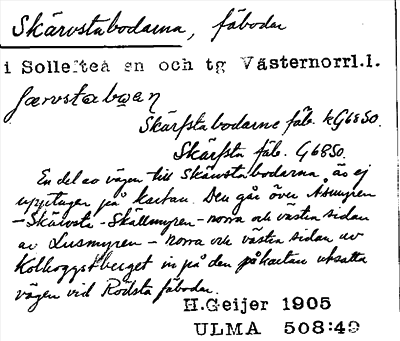 Skärvstabodarna, fäbodar
i Sollefteå sn och tg Västernorrl.l.
Skärfstabodarne fäb. kG68SO.
Skärfsta fäb. G68SO.
En del av vägen till Skärvstabodarna är ej
upptagen på kartan. Den går över Åsmyren
-Skärvsta-Skallmyren-norra och västra sidan
av Lusmyren - norra och västra sidan av
in på den på kartan utsatta
vägen vid Rödsta fäbodar.
H.Geijer 1905
ULMA 508:49